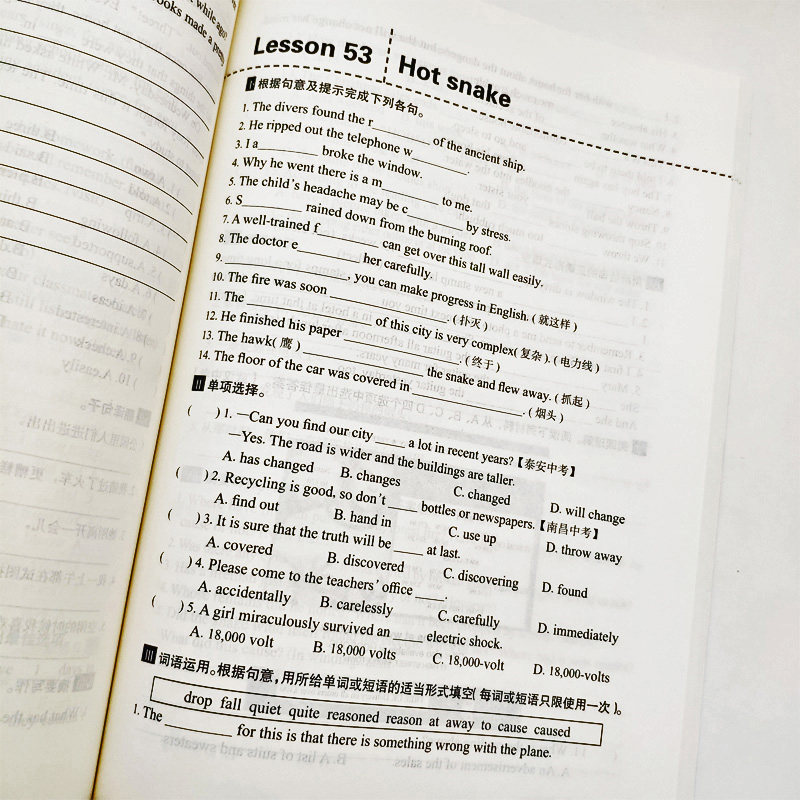 while ago?
ooks made a pretty
Lesson 53
Hot snake
I 根据句意及提示完成下列各句。
1. The divers found the r________ of the ancient ship.
2. He ripped out the telephone w________.
3. I a________ broke the window.
4. Why he went there is a m________ to me.
5. The child's headache may be c________ by stress.
6. S________ rained down from the burning roof.
7. A well-trained f________ can get over this tall wall easily.
8. The doctor e________ her carefully.
9. ________________, you can make progress in English. ( 就这样 )
10. The fire was soon ________________. ( 扑灭 )
11. The ________________ of this city is very complex( 复杂 ). ( 电力线 )
12. He finished his paper ________________. ( 终于 )
13. The hawk( 鹰 ) ________________ the snake and flew away. ( 抓起 )
14. The floor of the car was covered in ________________. ( 烟头 )
II 单项选择。
( ) 1. —Can you find our city ____ a lot in recent years?【泰安中考】
—Yes. The road is wider and the buildings are taller.
A. has changed B. changes C. changed D. will change
( ) 2. Recycling is good, so don't ____ bottles or newspapers.【南昌中考】
A. find out B. hand in C. use up D. throw away
( ) 3. It is sure that the truth will be ____ at last.
A. covered B. discovered C. discovering D. found
( ) 4. Please come to the teachers' office ____.
A. accidentally B. carelessly C. carefully D. immediately
( ) 5. A girl miraculously survived an ____ electric shock.
A. 18,000 volt B. 18,000 volts C. 18,000-volt D. 18,000-volts
III 词语运用。根据句意，用所给单词或短语的适当形式填空( 每词或短语只限使用一次 )。
drop fall quiet quite reasoned reason at away to cause caused
1. The ________ for this is that there is something wrong with the plane.